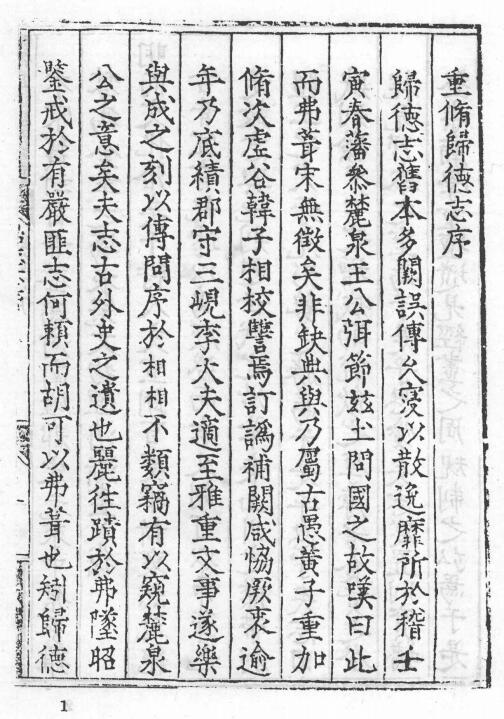 重脩歸德志序
歸德志舊本多闕誤傳久寖以散逸靡所於稽壬
寅春藩叅麓泉王公弭節茲土問國之故嘆曰此
而弗葺宋無徵矣非缺典與乃屬古愚黃子重加
脩次虛谷韓子相校讐焉訂譌補闕咸恊厥衷逾
年乃底績郡守三峴李大夫適至雅重文事遂樂
與成之刻以傳問序於相相不類竊有以窺麓泉
公之意矣夫志古外史之遺也麗徃蹟於弗墜昭
鑒戒於有嚴匪志何賴而胡可以弗葺也矧歸德
1